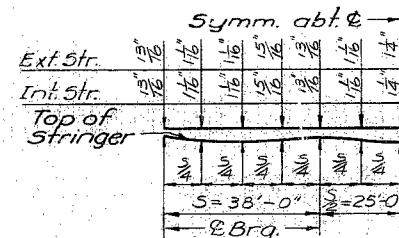 Symm. abt. ℄
Ext. Str. 13/16 1 1/16 1 1/16 15/16 13/16 1 1/16 1 1/4
Int. Str. 13/16 1 1/16 1 1/16 15/16 13/16 1 1/16 1 1/4
Top of
Stringer
S/4 S/4 S/4 S/4 S/4 S/4
S = 38'-0" S/2 = 25'-0
℄ Brg.